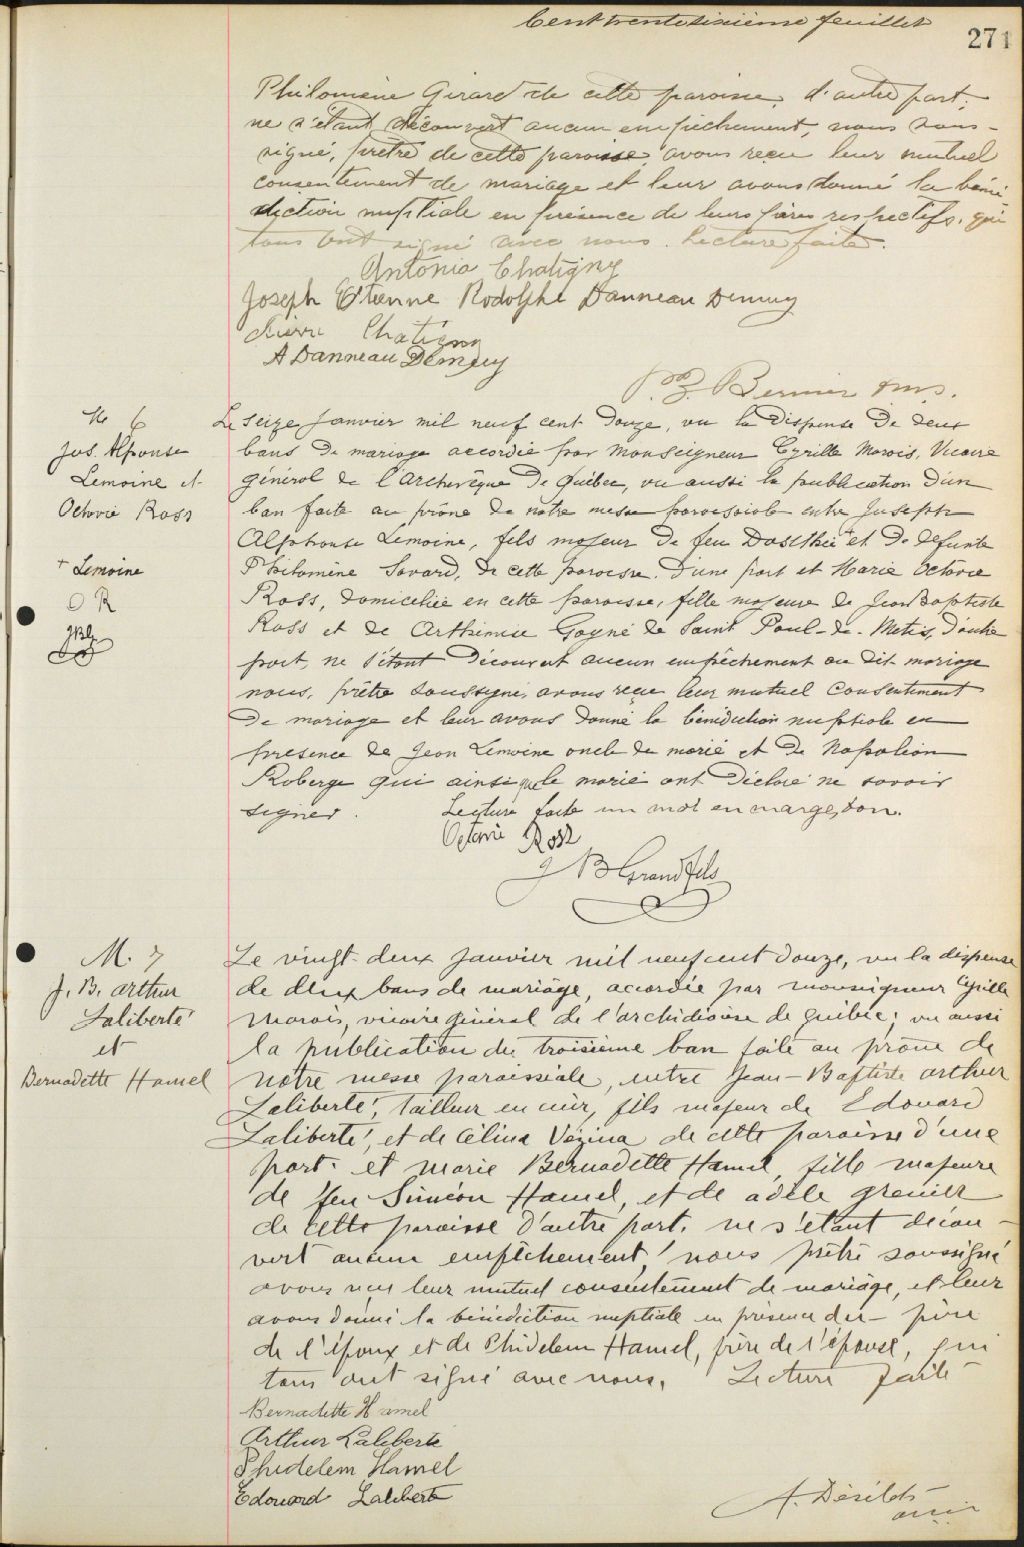 Cent trente sixième feuillet
271
Philomène Girard de cette paroisse, d'autre part;
ne s'étant découvert aucun empêchement, nous sous-
signé, prêtre de cette paroisse, avons reçu leur mutuel
consentement de mariage et leur avons donné la béné
diction nuptiale en présence de leurs pères respectifs, qui
tous ont signé avec nous. Lecture faite.
Antonia Chatigny
Joseph Etienne Rodolphe Danneau Demuy
Pierre Chatigny
A Danneau Demuy
P. Bernier
M 6
Jos. Alphonse
Lemoine et
Octavie Ross
+ Lemoine
O R
JBG
Le seize Janvier mil neuf cent douze, vu la dispense de deux
bans de mariage accordée par Monseigneur Cyrille Marois, Vicaire
général de l'Archevêque de Québec, vu aussi la publication d'un
ban faite au prône de notre messe paroissiale entre Joseph
Alphonse Lemoine, fils majeur de feu Dosithée + et de défunte
Philomène Savard, de cette paroisse, d'une part et Marie Octavie
Ross, domiciliée en cette paroisse, fille majeure de Jean Baptiste
Ross et de Arthémise Gagné de Saint Paul-de-Métis, d'autre
part, ne s'étant découvert aucun empêchement au dit mariage
nous, prêtre soussigné, avons reçu leur mutuel consentement
de mariage et leur avons donné la bénédiction nuptiale en
présence de Jean Lemoine oncle du marié et de Napoléon
Roberge qui ainsi que le marié ont déclaré ne savoir
signer. Lecture faite un mot en marge, bon.
Octavie Ross
J B Grandfils
M. 7
J. B. Arthur
Laliberté
et
Bernadette Hamel
Le vingt-deux Janvier mil neuf cent douze, vu la dispense
de deux bans de mariage, accordée par monseigneur Cyrille
Marois, vicaire général de l'archidiocèse de Québec; vu aussi
la publication du troisième ban faite au prône de
notre messe paroissiale, entre Jean-Baptiste Arthur
Laliberté, tailleur en cuir, fils majeur de Edouard
Laliberté, et de Célina Vézina de cette paroisse d'une
part. et Marie Bernadette Hamel, fille majeure
de feu Siméon Hamel, et de Adèle Grenier
de cette paroisse d'autre part. ne s'étant décou-
vert aucun empêchement, nous prêtre soussigné
avons reçu leur mutuel consentement de mariage, et leur
avons donné la bénédiction nuptiale en présence du- père
de l'époux et de Phidelem Hamel, frère de l'épouse, qui
tous ont signé avec nous. Lecture faite
Bernadette Hamel
Arthur Laliberté
Phidelem Hamel
Edouard Laliberté
A. Désilets